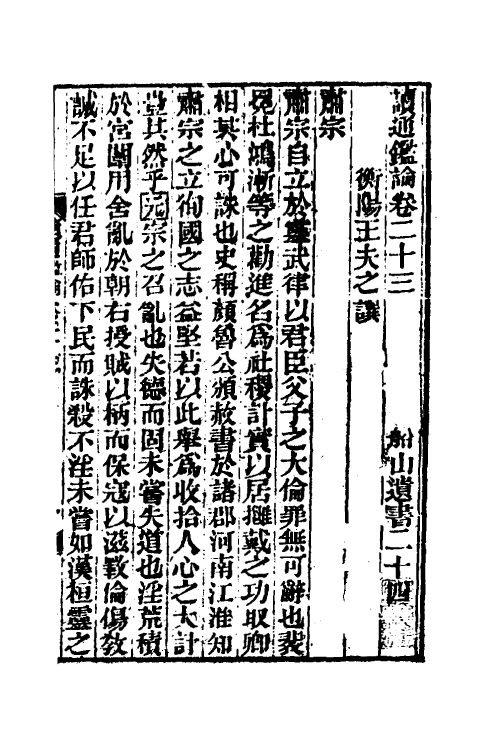 讀通鑑論卷二十三　船山遺書二十四
衡陽王夫之譔
肅宗
肅宗自立於靈武律以君臣父子之大倫罪無可辭也裴
冕杜鴻漸等之勸進名爲社稷計實以居擁戴之功取卿
相其心可誅也史稱顏魯公頒赦書於諸郡河南江淮知
肅宗之立徇國之志益堅若以此舉爲收拾人心之大計
豈其然乎元宗之召亂也失德而固未嘗失道也淫荒積
於宮闈用舍亂於朝右授賊以柄而保寇以滋敎倫傷敎
誠不足以任君師佑下民而誅殺不淫未嘗如漢桓靈之